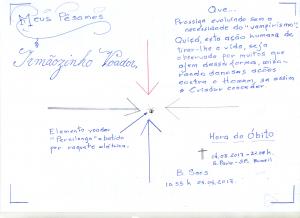 Meus Pêsames
Irmãozinho Voador,
Que...
Prossiga evoluindo sem a
necessidade do "vampirismo".
Quiçá, esta ação humana de
tirar-lhe a vida, seja
observada por muitos que
agem dessa forma,
danosas ações
contra o Homem, se assim
o Criador conceder
Elemento voador
"Pernilongo" abatido
por raquete elétrica.
Hora do Óbito
S. Paulo - SP. Brasil
B. Sors